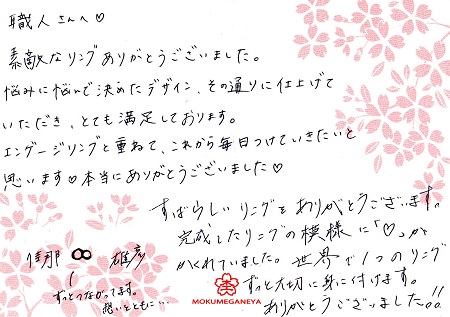 職人さんへ♡
素敵なリングありがとうございました。
悩みに悩んで決めたデザイン、その通りに仕上げて
いただき、とても満足しております。
エンゲージリングと重ねて、これから毎日つけていきたいと
思います♡本当にありがとうございました♡
すばらしいリングをありがとうございます。
完成したリングの模様に「♡」が
かくれていました。世界で1つのリング
ずっと大切に身に付けます。
ありがとうございました!!
佳那 ∞ 雄彦
ずっとつながってます。
想いをともに…
MOKUMEGANEYA